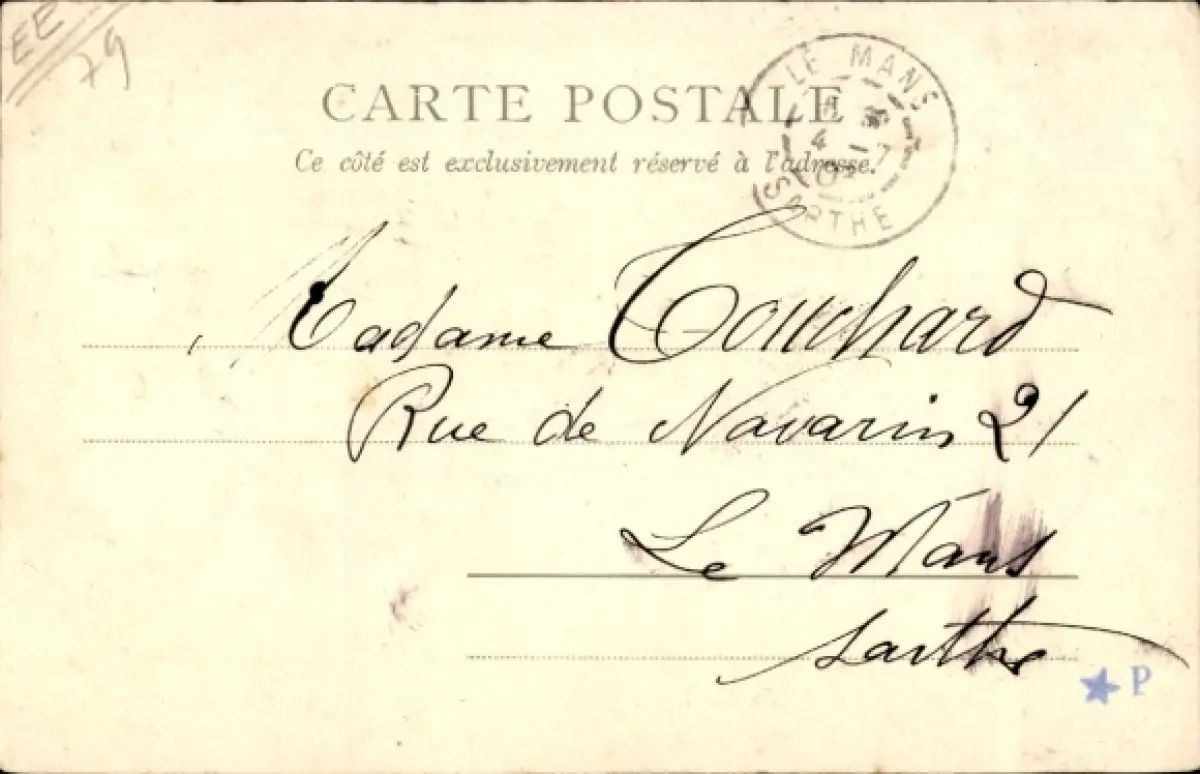 EE
79
CARTE POSTALE
Ce côté est exclusivement réservé à l'adresse.
LE MANS
4 - 7
SARTHE
Madame Touchard
Rue de Navarin 21
Le Mans
Sarthe
P